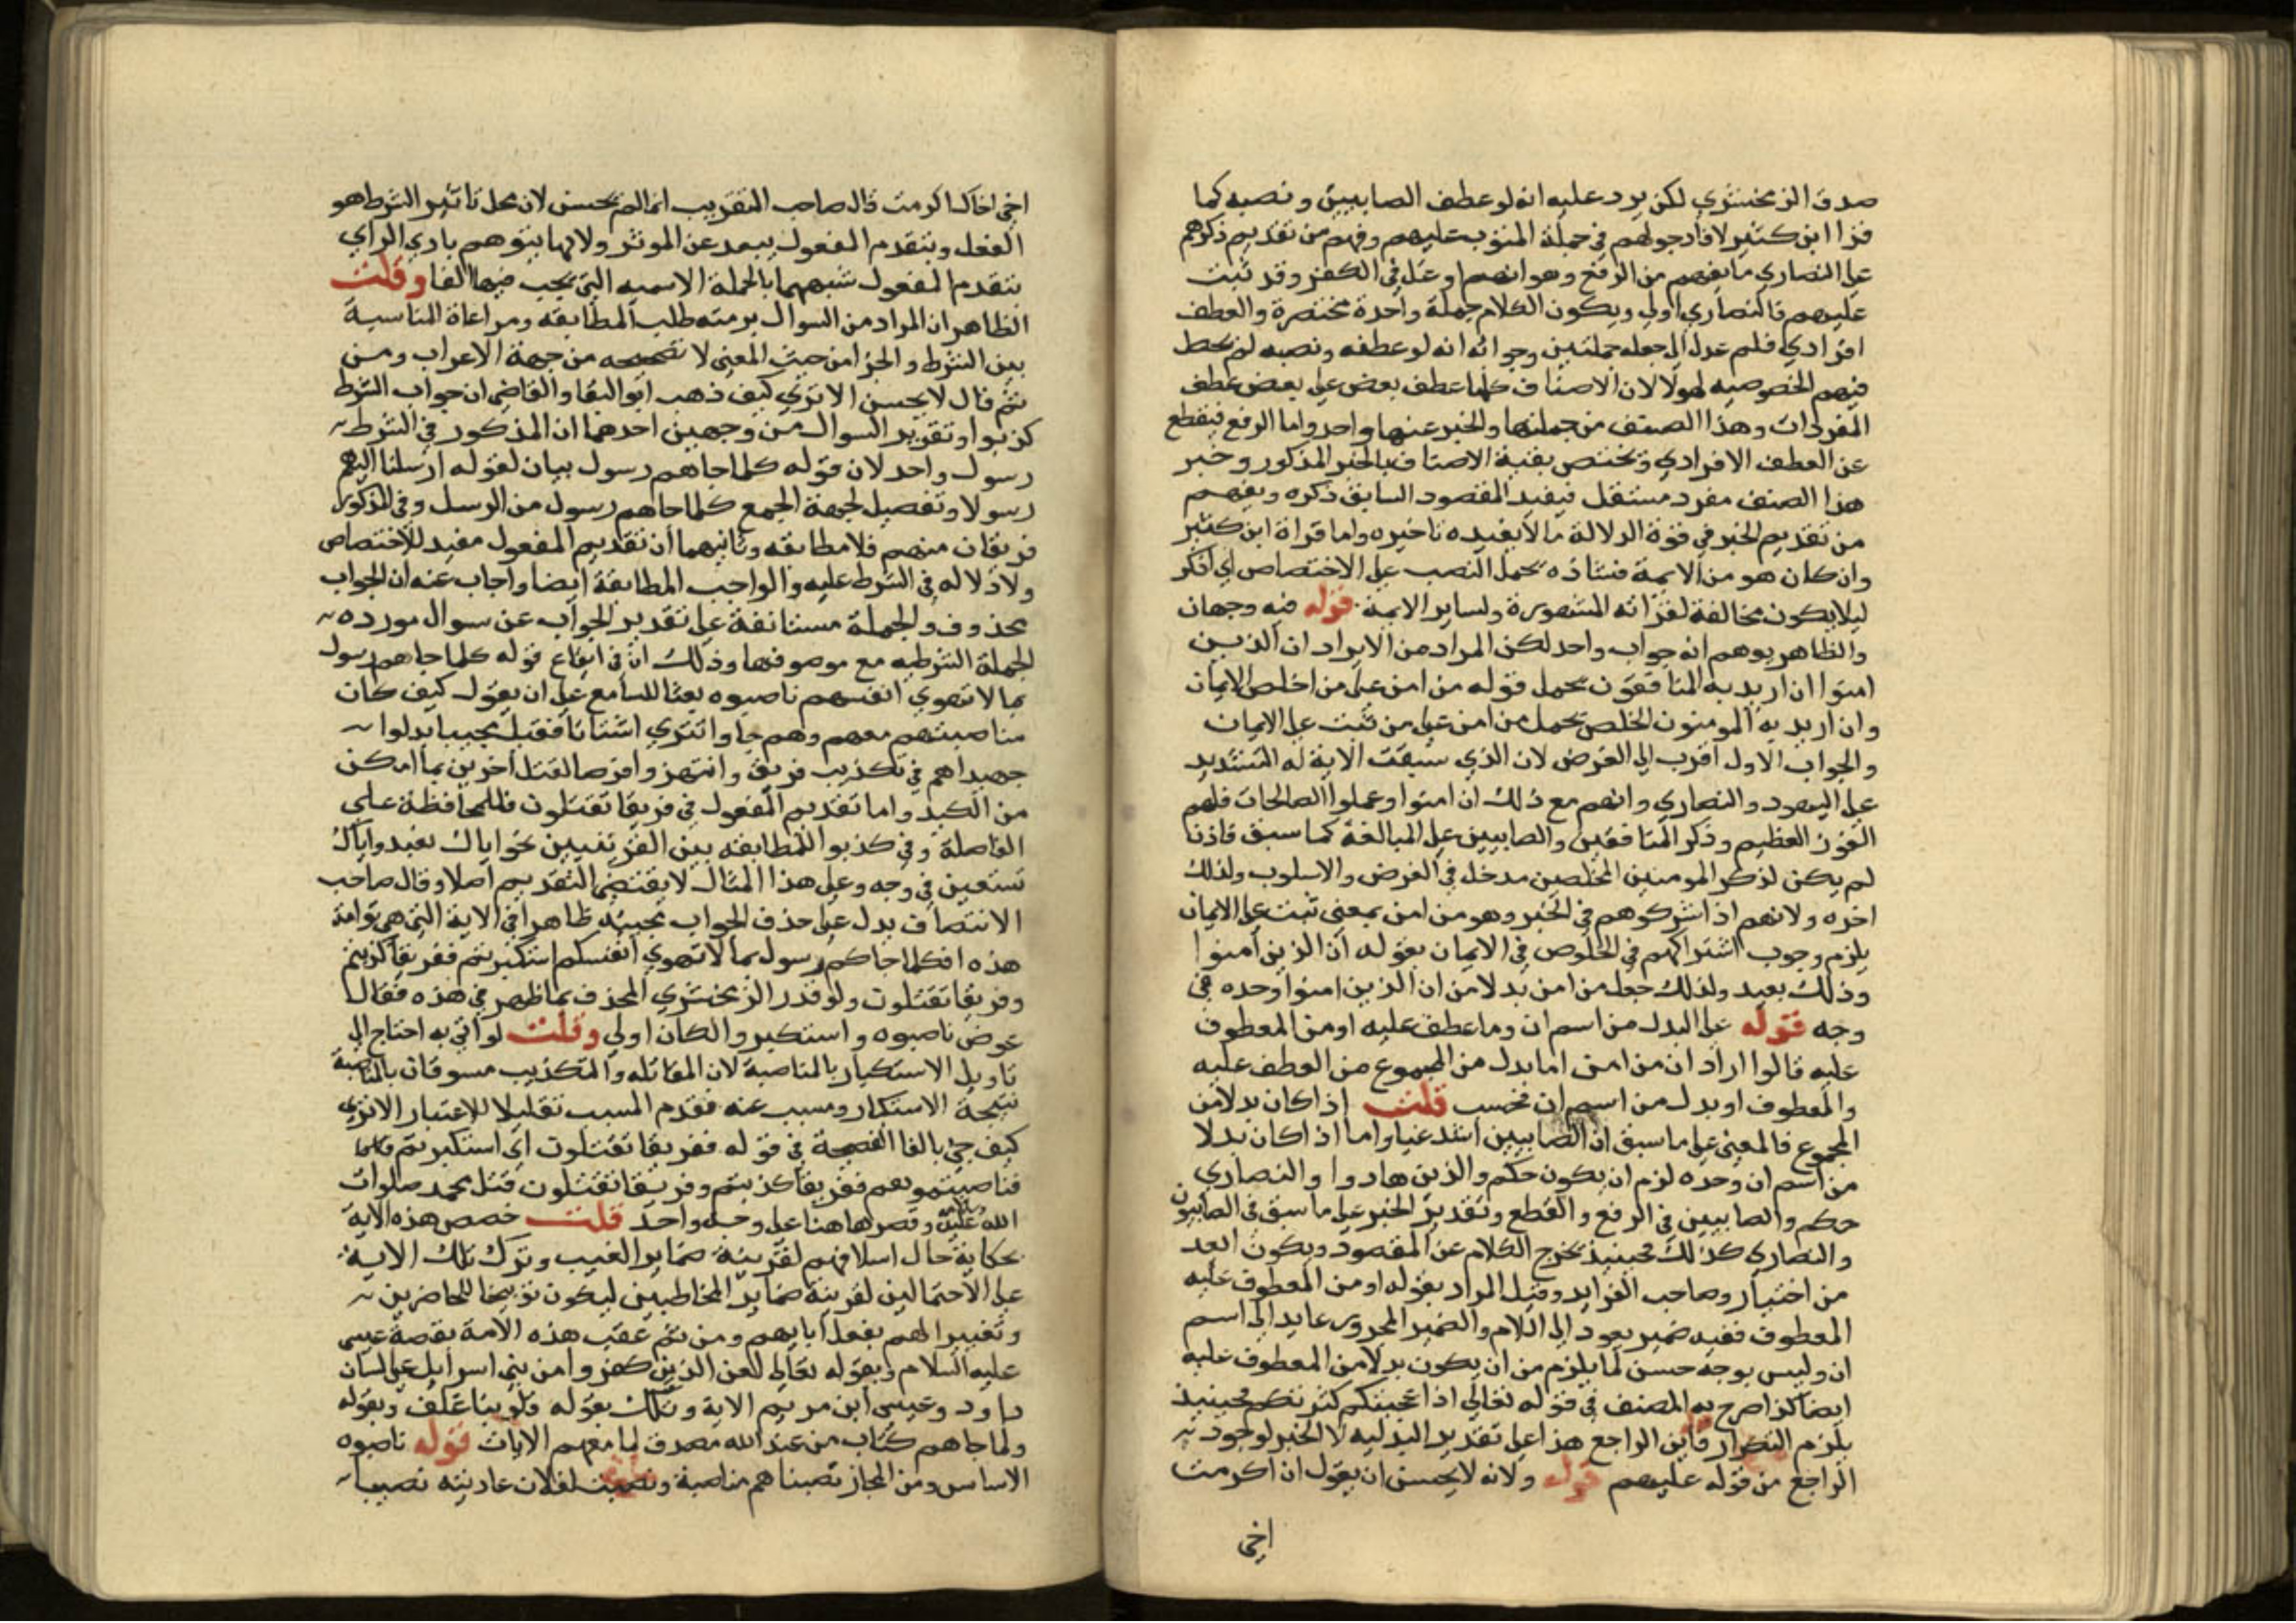 صدق الزمخشري لكن يرد عليه انه لو عطف الصابيين ونصبه كما
قرا ابن كثير لافاد دخولهم في جملة المتوب عليهم وفهم من تقديم ذكرهم
على النصاري ما يفهم من الرفع وهو انهم اوغل في الكفر وقد تبت
عليهم فالنصاري اولي ويكون الكلام جملة واحدة مختصرة والعطف
افرادي فلم عدل الي جعله جملتين وجوابه انه لو عطفه ونصبه لم يحط
فيهم الخصوصيه لهولا لان الاصناف كلها عطف بعض على بعض عطف
المفردات وهذا الصنف من جملتها والخبر عنها واحد واما الرفع فيقطع
عن العطف الافرادي وتختص بقية الاصناف بالخبر المذكور وخبر
هذا الصنف مفرد مستقل فيفيد المقصود السابق ذكره ويفهم
من تقديم الخبر في قوة الدلالة ما لا يفيده تاخيره واما قراة ابن كثير
وان كان هو من الايمة فشاذه يحمل النصب على الاختصاص اي اذكر
ليلا يكون مخالفة لقراته المشهورة ولساير الايمة قوله فيه وجهان
والظاهر يوهم انه جواب واحد لكن المراد من الايراد ان الذين
امنوا ان اريد به المنافقون يحمل قوله من امن على من اخلص الايمان
وان اريد به المومنون الخلص يحمل من امن على من ثبت على الايمان
والجواب الاول اقرب الي الغرض لان الذي سيقت الاية له التشديد
على اليهود والنصاري وانهم مع ذلك ان امنوا وعملوا الصالحات فلهم
الفوز العظيم وذكر المنافقين والصابيين على المبالغة كما سبق فاذن
لم يكن لذكر المومنين المخلصين مدخل في الغرض والاسلوب ولذلك
اخره ولانهم اذا شركوهم في الخبر وهو من امن بمعني ثبت على الايمان
يلزم وجوب اشتراكهم في الخلوص في الايمان بقوله ان الذين امنوا
وذلك بعيد ولذلك جعل من امن بدلا من ان الذين امنوا وحده في
وجه قوله على البدل من اسم ان وما عطف عليه او من المعطوف
عليه قالوا اراد ان من امن اما بدل من المجموع من العطف عليه
والمعطوف او بدل من اسم ان فحسب قلت اذا كان بدلا من
المجموع فالمعني على ما سبق ان الصابيين اشد غيا واما اذا كان بدلا
من اسم ان وحده لزم ان يكون حكم والذين هادوا والنصاري
حكم والصابيين في الرفع والقطع وتقدير الخبر على ما سبق في الصابيون
والنصاري كذلك فحينيذ يخرج الكلام عن المقصود ويكون ابعد
من اختيار صاحب الفرايد وقيل المراد بقوله او من المعطوف عليه
المعطوف ففيه ضمير يعود الي اللام والضمير المجرور عايد الي اسم
ان وليس بوجه حسن لما يلزم من ان يكون بدلا من المعطوف عليه
ايضا كذا صرح به المصنف في قوله تعالي اذا عجبتكم كثرتكم فحينيذ
يلزم التكرار فاين الراجع هذا على تقدير البدليه لا الخبر لوجود
الراجع من قوله عليهم قوله ولانه لا يحسن ان يقول ان اكرمت
اخي
اخي اخاك اكرمت قال صاحب التقريب انما لم يحسن لان محل تاثير الشرط هو
الفعل وبتقدم المفعول يبعد عن الموثر ولانها يتوهم بادي الراي
بتقدم المفعول شبهها بالجملة الاسميه التي يجب فيها الفا وقلت
الظاهر ان المراد من السوال برمته طلب المطابقه ومراعاة المناسبة
بين الشرط والجزا من حيث المعني لا تصحيحه من جهة الاعراب ومن
ثم قال لا يحسن الا تري كيف ذهب ابو البقا والقاضي ان جواب الشرط
كذبوا وتقرير السوال من وجهين احدهما ان المذكور في الشرط
رسول واحد لان قوله كلما جاهم رسول بيان لقوله ارسلنا اليهم
رسولا وتفصيل لجهة الجمع كلما جاهم رسول من الرسل وفي المذكور
فريقان منهم فلا مطابقه وثانيهما ان تقديم المفعول مفيد للاختصاص
ولا دلاله في الشرط عليه والواجب المطابقة ايضا واجاب عنه ان الجواب
محذوف والجملة مستانفة على تقدير الجواب عن سوال مورده
الجملة الشرطيه مع موصوفها وذلك ان في ايقاع قوله كلما جاهم رسول
بما لا تهوي انفسهم ناصبوه بعثا للسامع على ان يقول كيف كان
مناصبتهم معهم وهم جاوا تتري اشتاتا فقيل مجيبا بدلوا
جهدهم في تكذيب فريق وانتهزوا فرصا لقتل اخرين بما امكن
من الكيد واما تقديم المفعول في فريقا تقتلون فللمحافظة على
الفاصلة وفي كذبوا للمطابقه بين القرينتين نحو اياك نعبد واياك
نستعين في وجه وعلى هذا المثال لا يقتضي التقديم اصلا وقال صاحب
الانتصاف يدل على حذف الجواب مجييه ظاهرا في الاية التي هي توامة
هذه افكلما جاكم رسول بما لا تهوي انفسكم استكبرتم ففريقا كذبتم
وفريقا تقتلون ولو قدر الزمخشري المحذف بما ظهر في هذه فقال
عوض ناصبوه واستكبروا لكان اولي وقلت لو اتي به احتاج الي
تاويل الاستكبار بالمناصبة لان المقاتله والتكذيب مسوقان بالمناصبة
نتيجة الاستكبار ومسبب عنه فقدم المسبب تقليلا للاعتبار الا تري
كيف جي بالفا الفصيحة في قوله ففريقا تقتلون اي استكبرتم فلما
فناصبتموهم ففريقا كذبتم وفريقا تقتلون قتل محمد صلوات
الله عليه وقصرها هنا على وجه واحد قلت خصص هذه الاية
بحكاية حال اسلافهم لقرينة ضماير الغيب وترك تلك الاية
على الاحتمالين لقرينة ضماير المخاطبين ليكون توبيخا للحاضرين
وتعييرا لهم بفعل ابايهم ومن ثم عقب هذه الامة بقصة عيسي
عليه السلام وبقوله تعالي لعن الذين كفروا من بني اسرايل على لسان
داود وعيسي ابن مريم الاية وتلك بقوله قلوبنا غلف وبقوله
ولما جاهم كتاب من عند الله مصدق لما معهم الايات قوله ناصبوه
الاساس ومن المجاز نصبنا هم مناصبة ونصبت لفلان عاديته نصبا